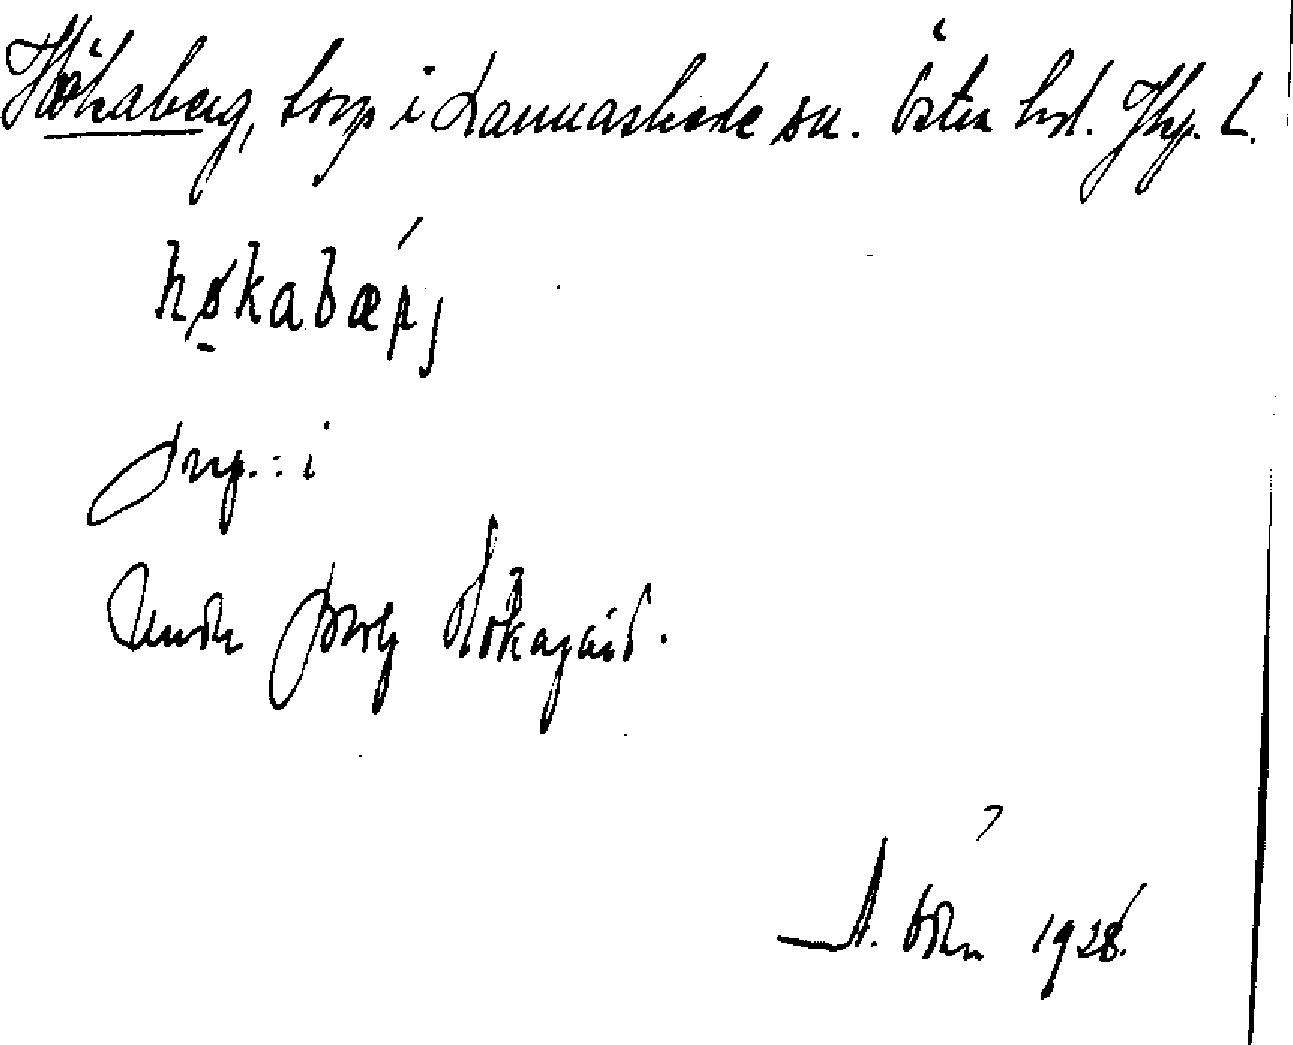 Hökaberg, torp i Lannaskede sn. Östra hd. Jkp. L.
høkabærj
prep.: i
Under Hökagård.
A. 1928.